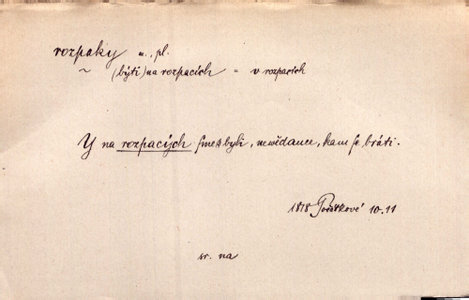 rozpaky m., pl.
~ (býti) na rozpacích = v rozpacích
Y na rozpacých sme byli, newědauce, kam se bráti.
1818 10.11
sr. na